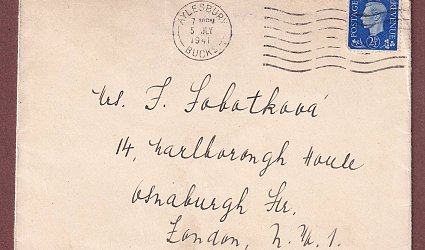 AYLESBURY
7 30PM
5 JLY
1941
BUCKS
POSTAGE
REVENUE
2½
Ms. F. Sobotková
14, Marlborough House
Osnaburgh Str.
London, N.W.1.